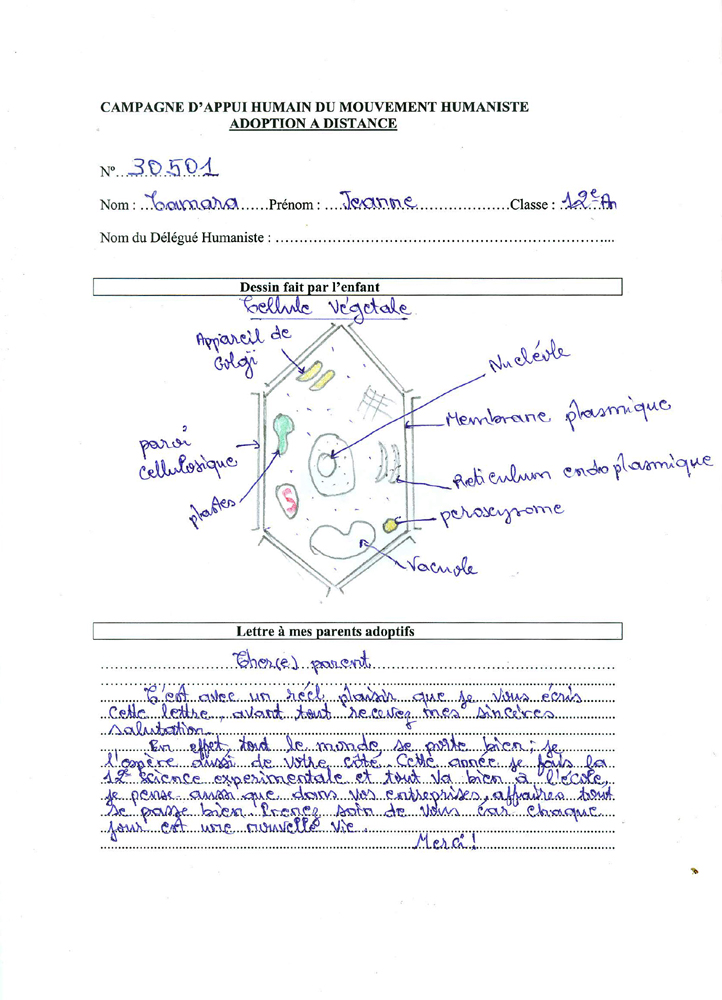 CAMPAGNE D'APPUI HUMAIN DU MOUVEMENT HUMANISTE
ADOPTION A DISTANCE
N° 30501
Nom : Camara Prénom : Jeanne Classe : 12e An
Nom du Délégué Humaniste :
Dessin fait par l'enfant
Cellule Végetale
Appareil de
Golgi
Nucléole
Membrane plasmique
paroi
cellulosique
Réticulum endoplasmique
plastes
peroxysome
Vacuole
Lettre à mes parents adoptifs
Cher(e) parent
C'est avec un réel plaisir que je vous écris
cette lettre, avant tout recevez mes sincères
salutation.
En effet, tout le monde se porte bien ; je
l'espère aussi de votre côté. Cette année je fais la
12e science experimentale et tout va bien à l'école,
je pense aussi que dans vos entreprises, affaires tout
se passe bien. Prenez soin de vous car chaque
jour est une nouvelle vie.
Merci !